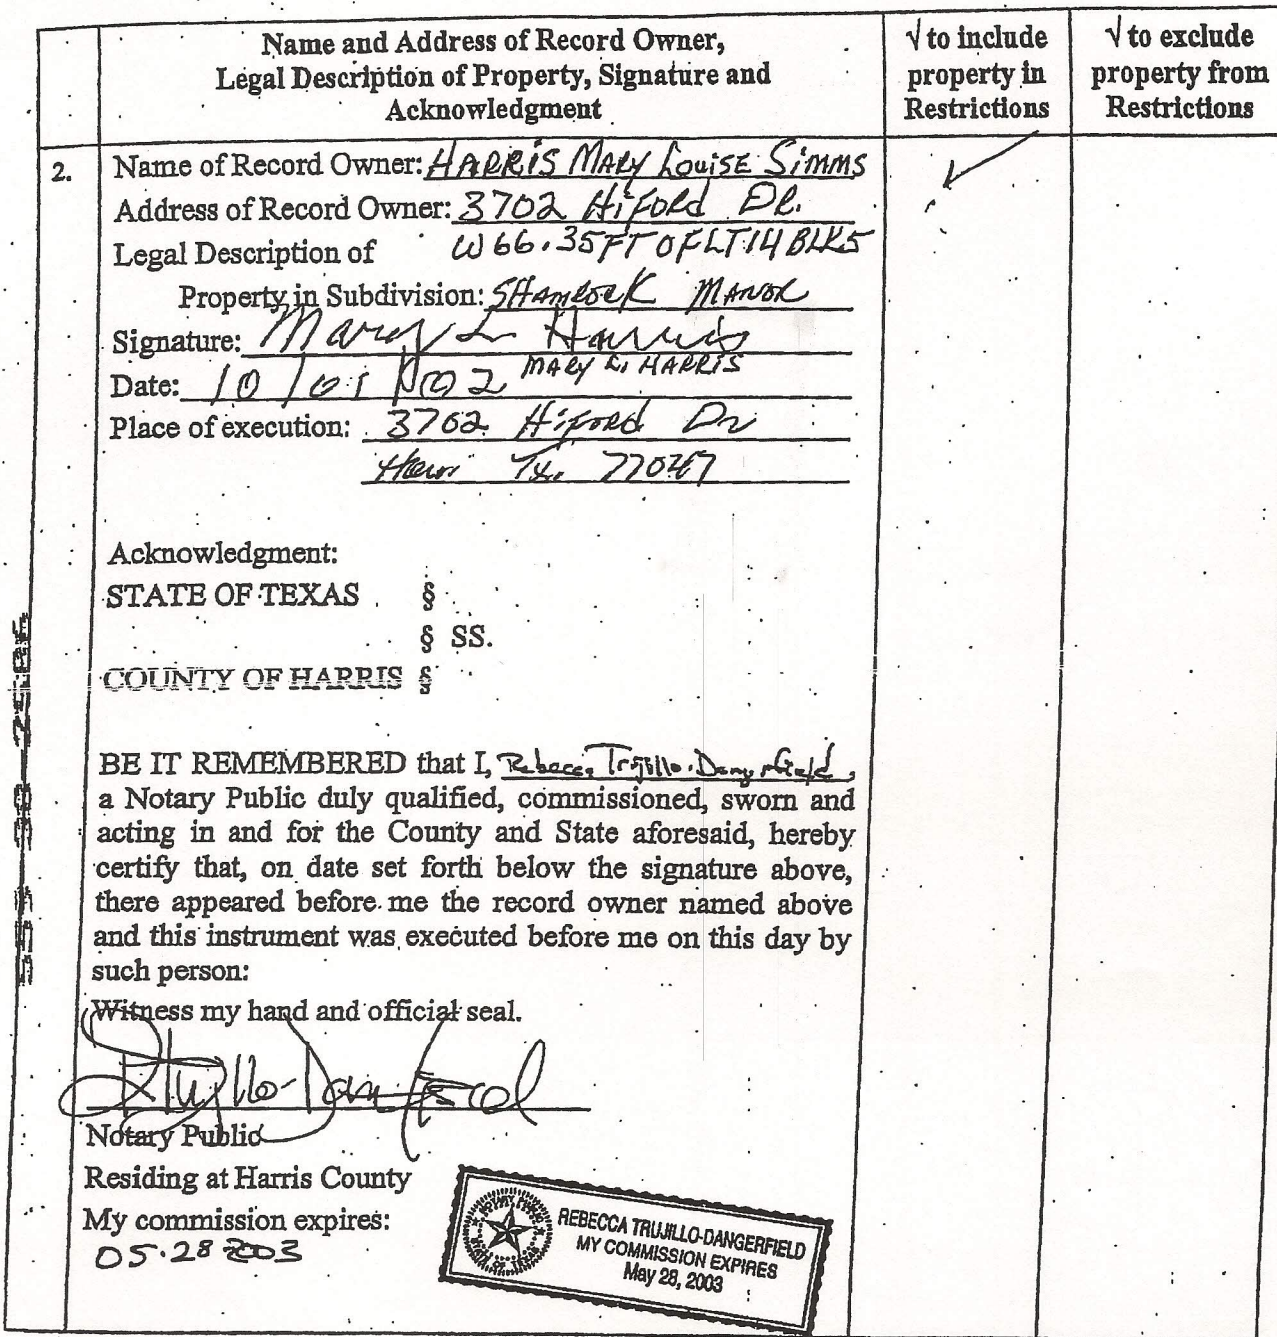 Name and Address of Record Owner,
Legal Description of Property, Signature and
Acknowledgment
√ to include
property in
Restrictions
√ to exclude
property from
Restrictions
2.
Name of Record Owner: HARRIS MARY LOUISE SIMMS
Address of Record Owner: 3702 Hiford DR.
Legal Description of W 66.35 FT OF LT 14 BLK 5
Property in Subdivision: SHAMROCK MANOR
Signature: Mary L Harris
MARY L. HARRIS
Date: 10/01/02
Place of execution: 3702 Hiford Dr
Tx. 77047
Acknowledgment:
STATE OF TEXAS §
§ SS.
COUNTY OF HARRIS §
BE IT REMEMBERED that I, Rebecca Trujillo-Dangerfield,
a Notary Public duly qualified, commissioned, sworn and
acting in and for the County and State aforesaid, hereby
certify that, on date set forth below the signature above,
there appeared before me the record owner named above
and this instrument was executed before me on this day by
such person:
Witness my hand and official seal.
Notary Public
Residing at Harris County
My commission expires:
05.28 2003
NOTARY PUBLIC
STATE OF TEXAS
REBECCA TRUJILLO-DANGERFIELD
MY COMMISSION EXPIRES
May 28, 2003